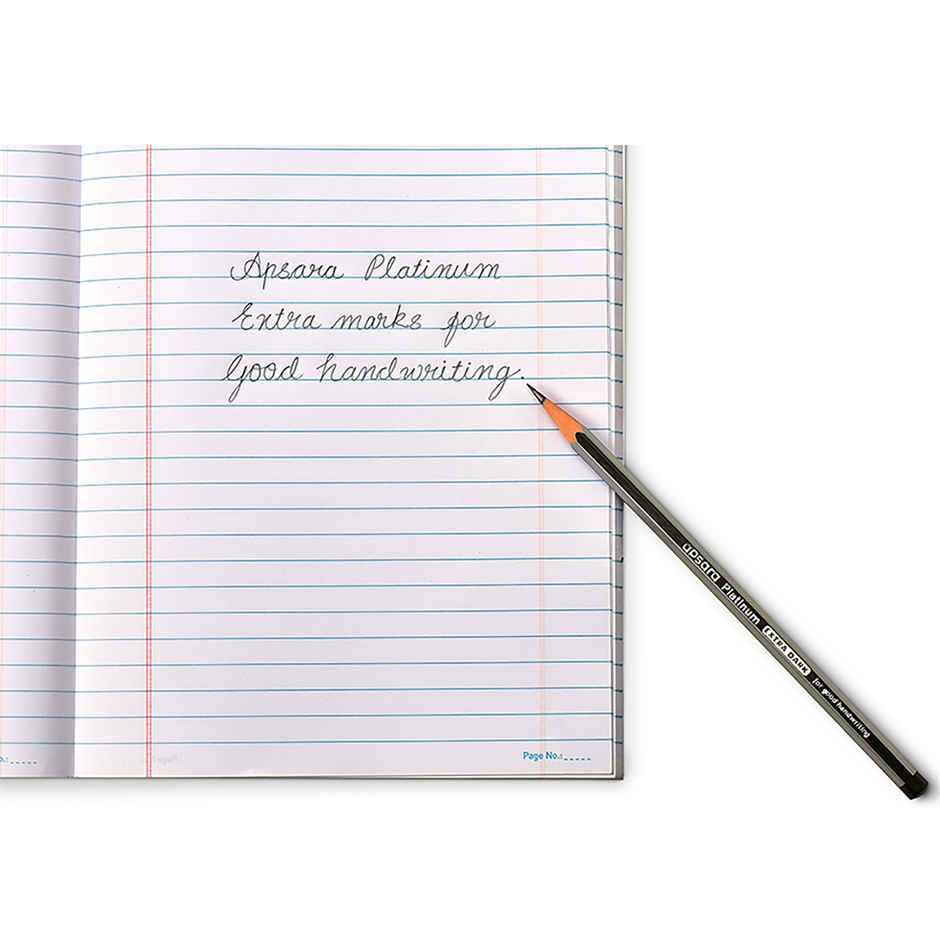 Apsara Platinum
Extra marks for
Good handwriting.
apsara Platinum EXTRA DARK for good handwriting
Page No.: